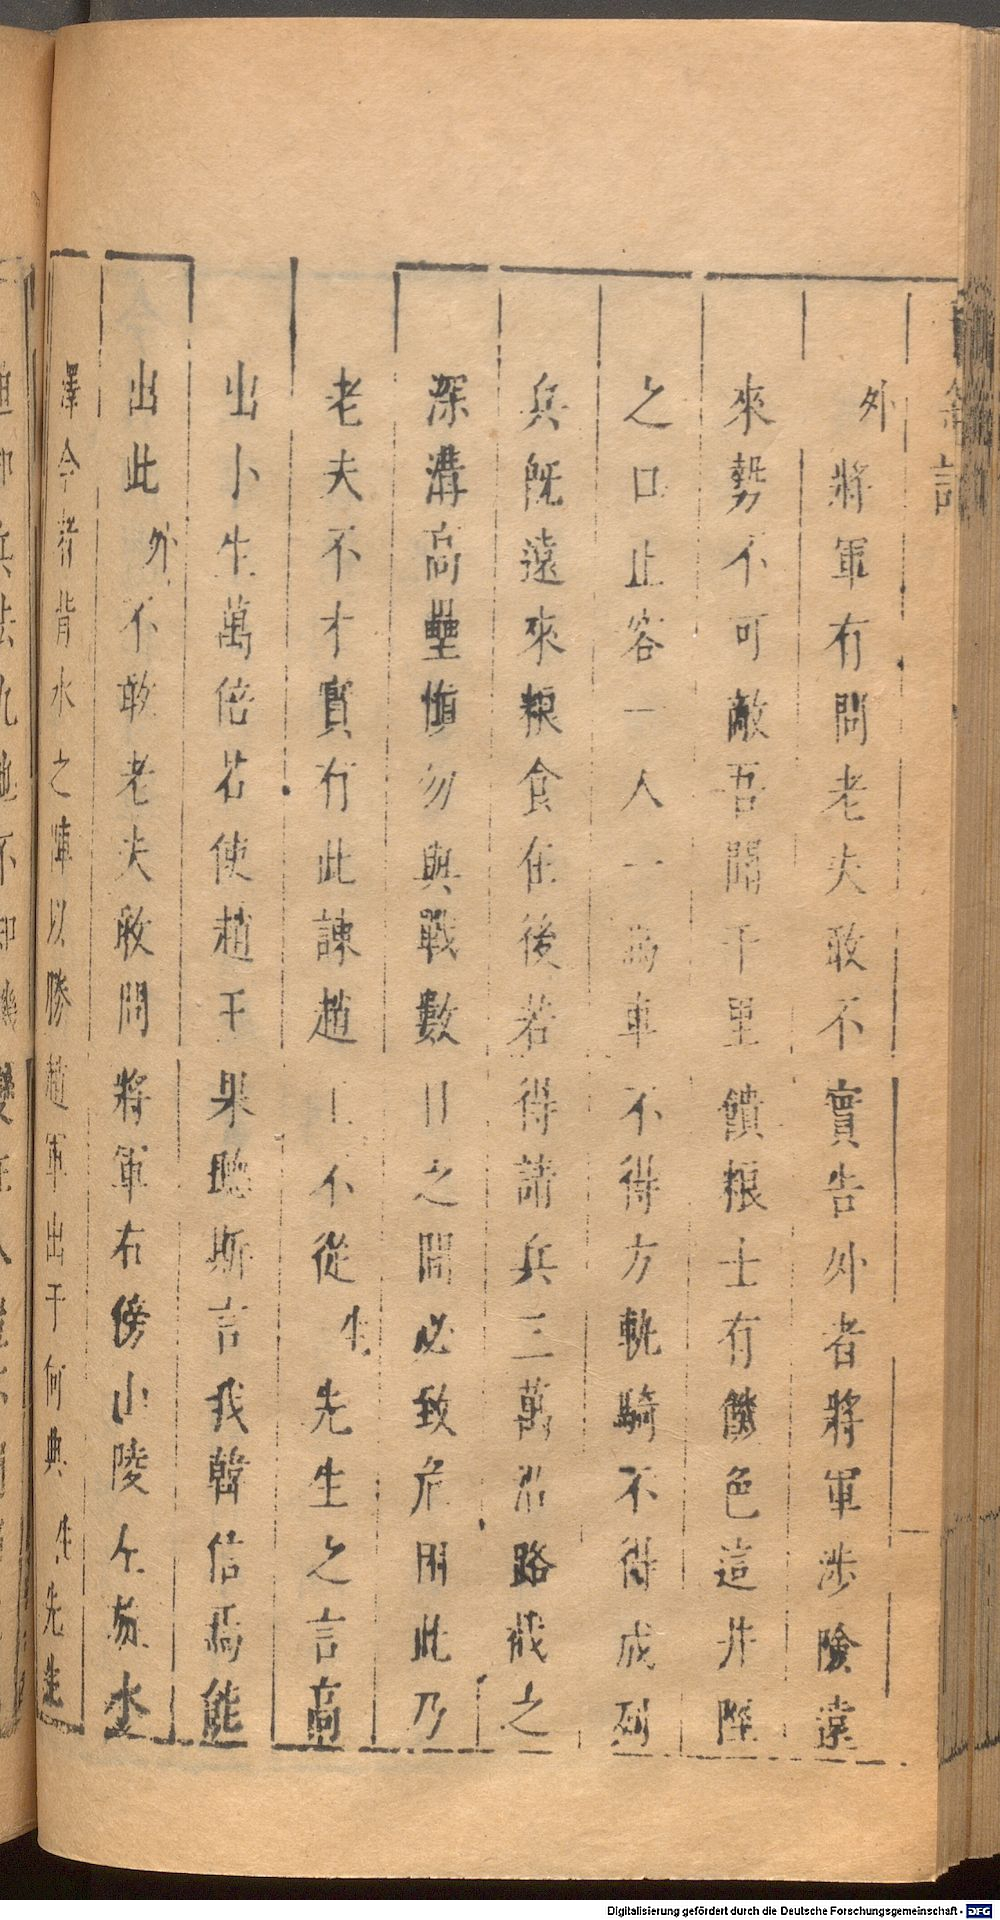 記
外將軍有問老夫敢不實告外者將軍涉險遠
來勢不可敵吾聞千里饋粮士有饑色這井陘
之口止容一人一馬車不得方軌騎不得成列
兵既遠來粮食在後若得請兵三萬沿路截之
深溝高壘慎勿與戰數日之間必致危困此乃
老夫不才實有此諫趙王不從生先生之言高
出卜生萬倍若使趙王果聽斯言我韓信焉能
出此外不敢老夫敢問將軍右傍山陵左
水澤今者背水之陣以勝趙軍出于何典生先生
兵法九地不
Digitalisierung gefördert durch die Deutsche Forschungsgemeinschaft - DFG